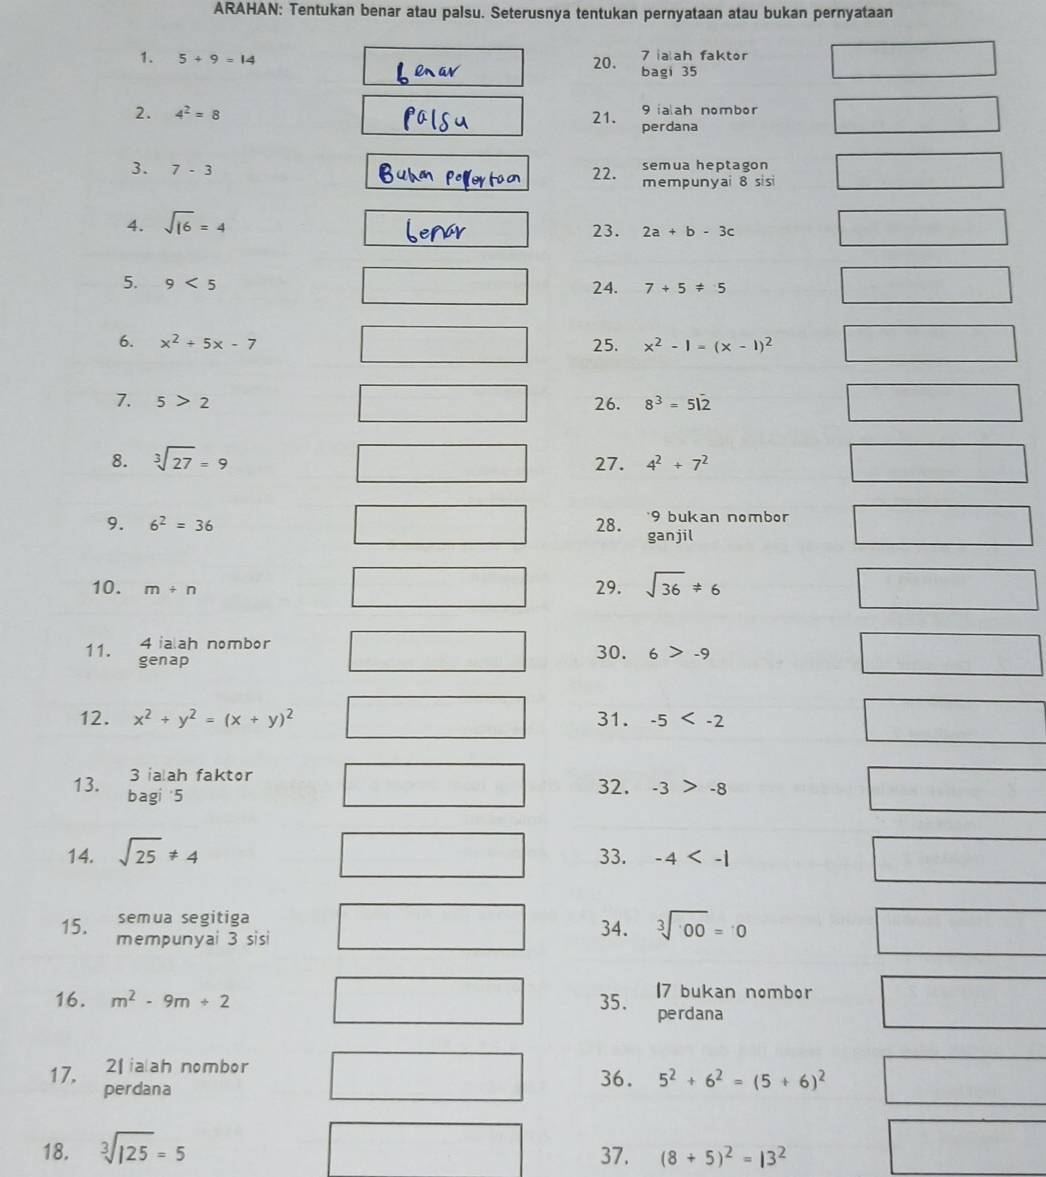 ARAHAN: Tentukan benar atau palsu. Seterusnya tentukan pernyataan atau bukan pernyataan
1. 5 + 9 = 14 benar
2. 4² = 8 palsu
3. 7 - 3 Bukan
4. √16 = 4 benar
5. 9 < 5
6. x² + 5x - 7
7. 5 > 2
8. ∛27 = 9
9. 6² = 36
10. m ÷ n
11. 4 ialah nombor
genap
12. x² + y² = (x + y)²
13. 3 ialah faktor
bagi 5
14. √25 ≠ 4
15. semua segitiga
mempunyai 3 sisi
16. m² - 9m + 2
17. 21 ialah nombor
perdana
18. ∛125 = 5
20. 7 ialah faktor
bagi 35
21. 9 ialah nombor
perdana
22. semua heptagon
mempunyai 8 sisi
23. 2a + b - 3c
24. 7 + 5 ≠ 5
25. x² - 1 = (x - 1)²
26. 8³ = 512
27. 4² + 7²
28. 9 bukan nombor
ganjil
29. √36 ≠ 6
30. 6 > -9
31. -5 < -2
32. -3 > -8
33. -4 < -1
34. ∛00 = 0
35. 17 bukan nombor
perdana
36. 5² + 6² = (5 + 6)²
37. (8 + 5)² = 13²